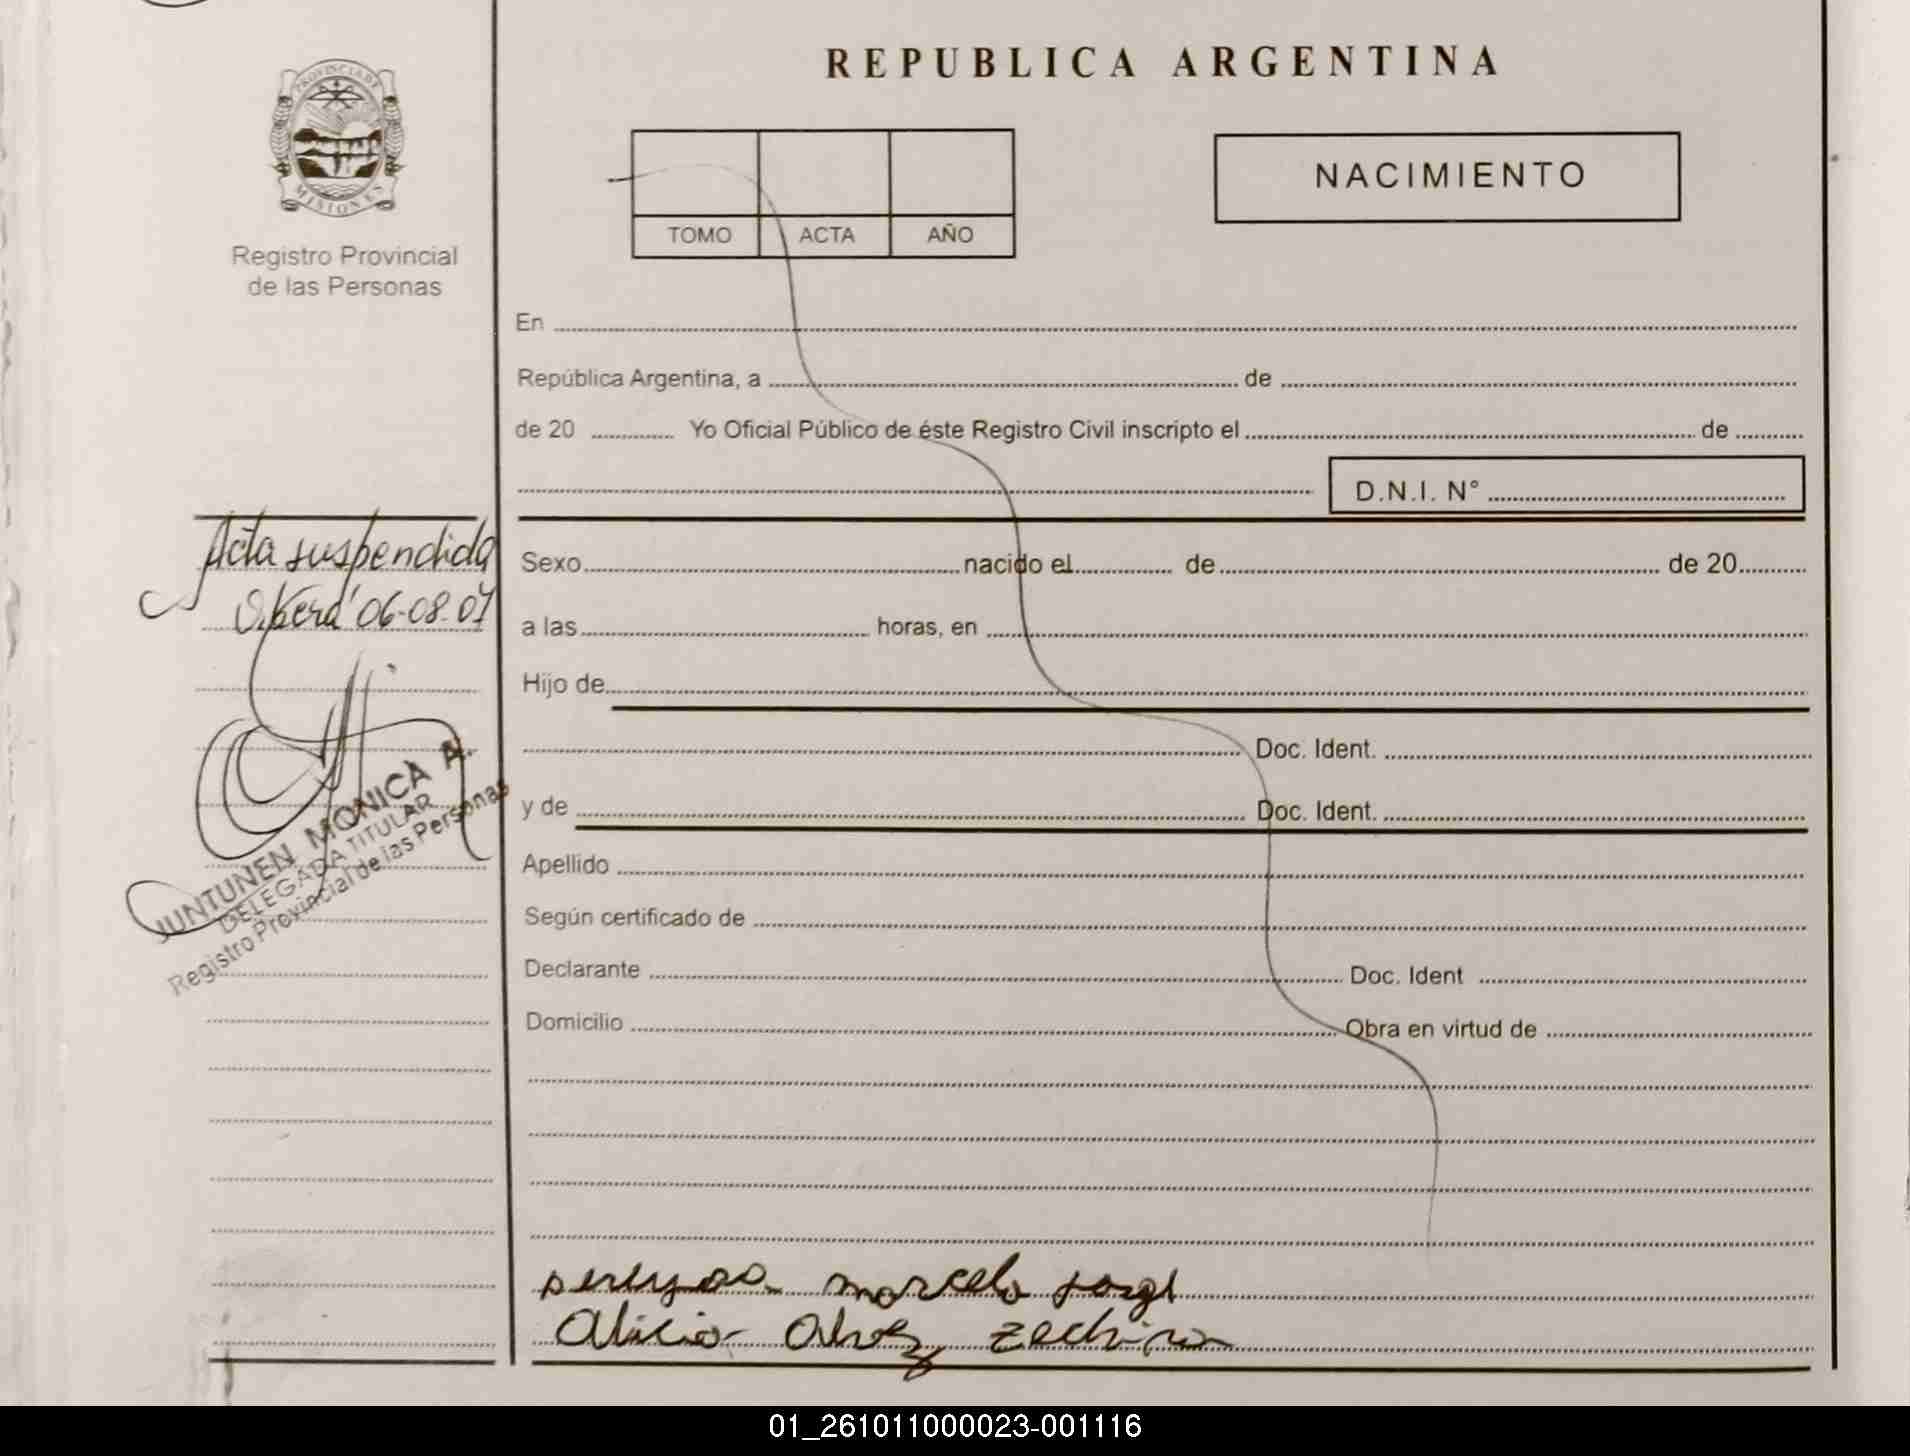 PROVINCIA DE
MISIONES
Registro Provincial
de las Personas
Acta suspendida
Oberá 06-08-07
JUNTUNEN MONICA A.
DELEGADA TITULAR
Registro Provincial de las Personas
REPUBLICA ARGENTINA
TOMO ACTA AÑO
NACIMIENTO
En
República Argentina, a de
de 20 Yo Oficial Público de éste Registro Civil inscripto el de
D.N.I. N°
Sexo nacido el de de 20
a las horas, en
Hijo de
Doc. Ident.
y de Doc. Ident.
Apellido
Según certificado de
Declarante Doc. Ident
Domicilio Obra en virtud de
marcelo
Alicia Alvez
01_261011000023-001116